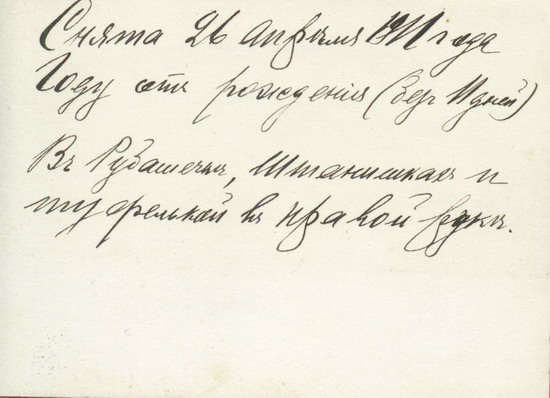 Снята 26 апреля 1911 года
Году отъ рожденія (безъ 11 дней)
Въ Рубашечкѣ, Штанишкахъ и
туфелькой въ правой рукѣ.